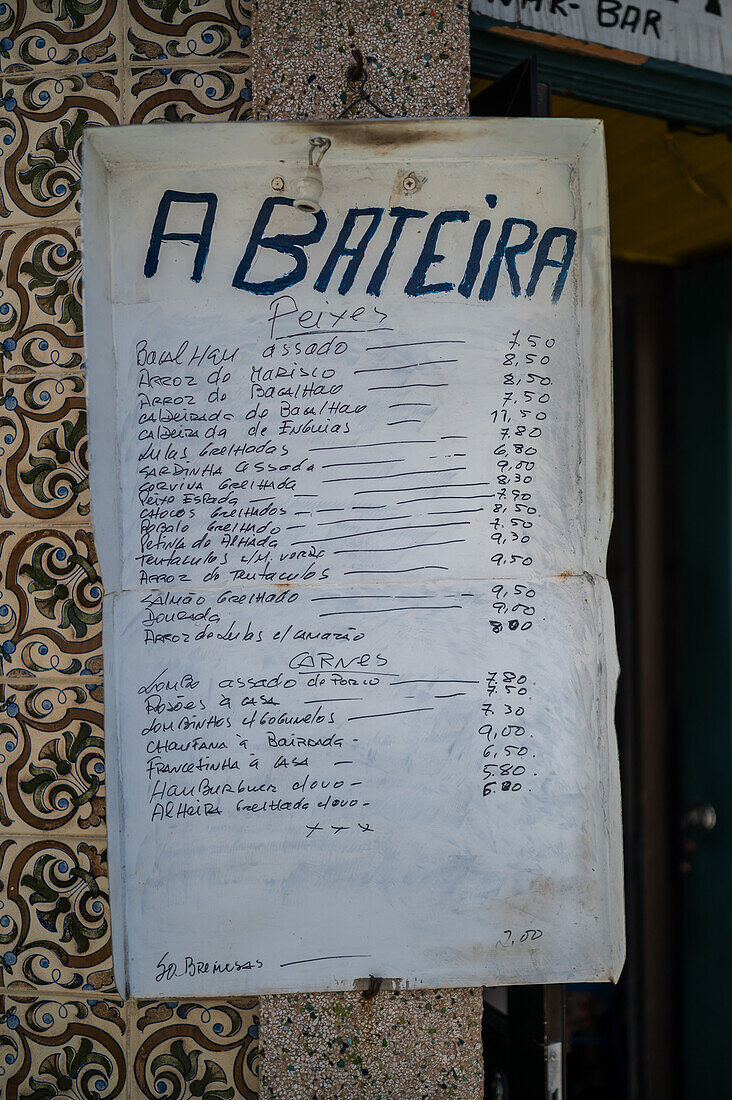 BAR
A BATEIRA
Peixes
BacalHau assado 7.50
Arroz de Marisco 8,50
Arroz de BacalHao 8,50
Caldeirada de BacalHao 7.50
Caldeirada de Enguias 11,50
Lulas Grelhadas 7.80
Sardinha assada 6,80
Corvina Grelhada 9,00
Peixe Espada 8,30
Chocos Grelhados 7.90
Robalo Grelhado 8,50
Petinga de Alhada 7.50
Tentaculos c/M verde 9,30
Arroz de Tentaculos 9,50
Salmão Grelhado 9,50
Dourada 9,00
Arroz de Lulas c/camarão 8,00
CARNES
Lombo assado de Porco 7.80
Rojões à casa 7.50.
Lombinhos c/Cogumelos 7.30
Chanfana à Bairrada - 9,00
Francesinha à casa - 6,50.
Hamburguer c/ovo - 5.80.
Alheira Grelhada c/ovo - 6.80.
x x x
2,00
SoBremesas